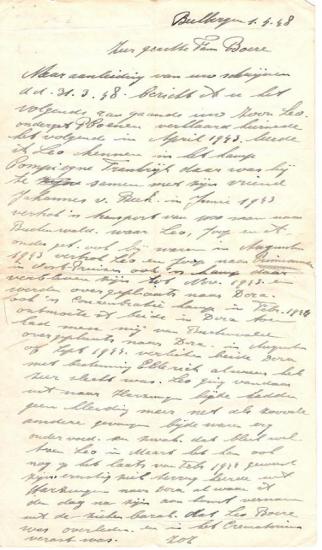 Bulbergen 1.4.48
Zeer geachte Fam Boere
Naar aanleiding van uw schrijven
d.d. 31.3.48. bericht ik u het
volgende aangaande uw zoon Leo.
onderget. verklaard hiermede
het volgende in April 1943. leerde
ik Leo kennen in het kamp
Compiegne Frankrijk daar was hij
te samen met zijn vriend
Johannes v. in Junie 1943
vertrok 't transport van ons naar
Buchenwald. waar Leo, Joop en ik.
onderget. ook bij waren in Augustus
1943 vertrok Leo en Joop naar
in Oost Pruisen ook 'n kamp daar
zijn tot Nov. 1943. en
werden overgeplaatst naar Dora.
ook 'n Concentratie kamp in Feb. 1944
ontmoette ik beide in Dora hier
had men mij van Buchenwald
overgeplaatst naar Dora. in Augustus
of Sept 1944. verlieten beide Dora
met bestemming Ellrich alwaar het
zeer slecht was. Leo ging vandaar
uit naar Harzungen bijde hadden
geen kleeding meer net als zoovele
andere gevangen bijde waren erg
onder voed. en zwak. dat
Leo in Maart het kan ook
nog op het laatst van Feb 1945 geweest
zijn ernstig ziek terug keerde uit
Harzungen naar Dora, alwaar ik
de dag na zijn aankomst vernam
uit de zieken barak dat Leo Boere
was overleden. en in het Crematorium
verast was. Z.O.Z.